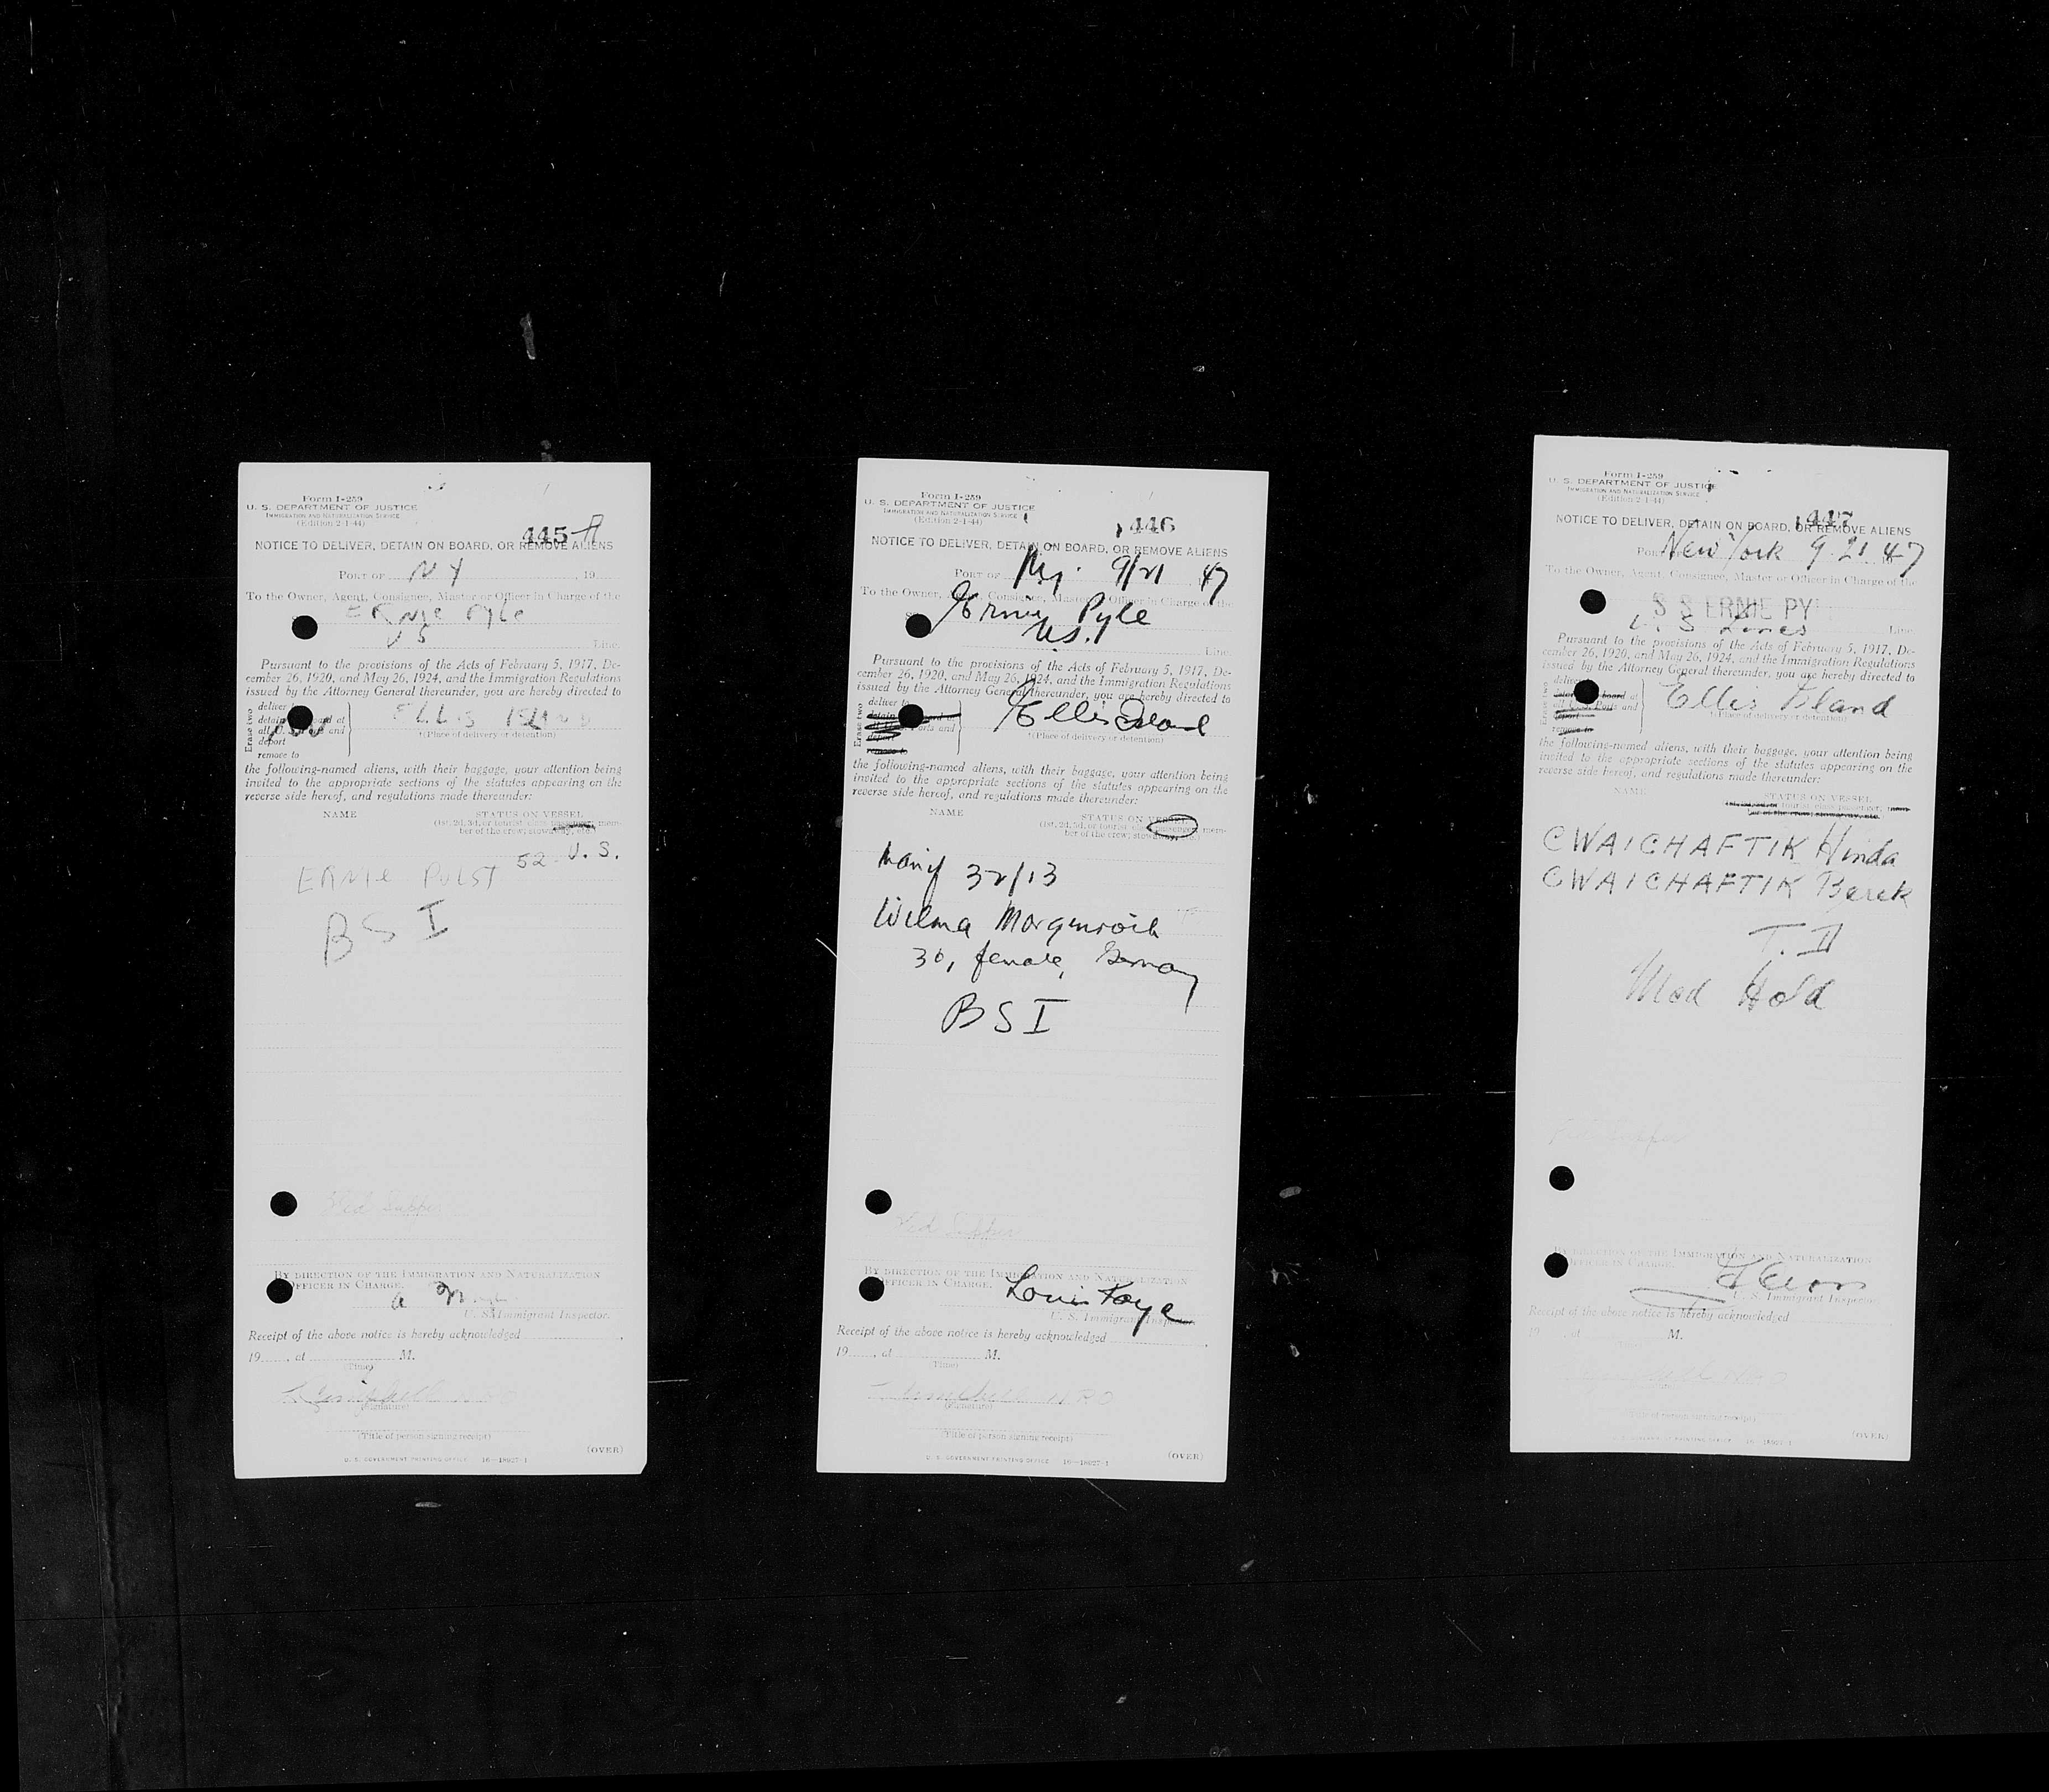 Form I-259
U. S. DEPARTMENT OF JUSTICE
IMMIGRATION AND NATURALIZATION SERVICE
(Edition 2-1-44)
445-A
NOTICE TO DELIVER, DETAIN ON BOARD, OR REMOVE ALIENS
PORT OF NY , 19
To the Owner, Agent, Consignee, Master or Officer in Charge of the
ERNIE PYLE
US Line.
Pursuant to the provisions of the Acts of February 5, 1917, De-
cember 26, 1920, and May 26, 1924, and the Immigration Regulations
issued by the Attorney General thereunder, you are hereby directed to
Erase two
deliver
detain board at
all U. Ports and
deport
remove to
ELLIS ISLAND
*(Place of delivery or detention)
the following-named aliens, with their baggage, your attention being
invited to the appropriate sections of the statutes appearing on the
reverse side hereof, and regulations made thereunder:
NAME STATUS ON VESSEL
(1st, 2d, 3d, or tourist class passenger, mem-
ber of the crew, stowaway, etc.)
52 U.S.
ERNIE PULST
BSI
BY DIRECTION OF THE IMMIGRATION AND NATURALIZATION
OFFICER IN CHARGE.
U. S. Immigrant Inspector.
Receipt of the above notice is hereby acknowledged
19 , at M.
(Time)
(Signature)
(Title of person signing receipt)
(OVER)
U. S. GOVERNMENT PRINTING OFFICE 16—18927-1
Form I-259
U. S. DEPARTMENT OF JUSTICE
IMMIGRATION AND NATURALIZATION SERVICE
(Edition 2-1-44)
446
NOTICE TO DELIVER, DETAIN ON BOARD, OR REMOVE ALIENS
PORT OF Ny. 9/21 47
To the Owner, Agent, Consignee, Master or Officer in Charge of the
Ernie Pyle
U.S. Line.
Pursuant to the provisions of the Acts of February 5, 1917, De-
cember 26, 1920, and May 26, 1924, and the Immigration Regulations
issued by the Attorney General thereunder, you are hereby directed to
Erase two
deliver to
detain
Ports and
remove to
Ellis Island
*(Place of delivery or detention)
the following-named aliens, with their baggage, your attention being
invited to the appropriate sections of the statutes appearing on the
reverse side hereof, and regulations made thereunder:
NAME STATUS ON VESSEL
(1st, 2d, 3d, or tourist class passenger, mem-
ber of the crew, stowaway, etc.)
Manif 32/13
Wilma Morgenroth
30, female, Germany
BSI
BY DIRECTION OF THE IMMIGRATION AND NATURALIZATION
OFFICER IN CHARGE.
Louis Kaye
U. S. Immigrant Inspector.
Receipt of the above notice is hereby acknowledged
19 , at M.
(Time)
(Signature)
(Title of person signing receipt)
(OVER)
U. S. GOVERNMENT PRINTING OFFICE 16—18927-1
Form I-259
U. S. DEPARTMENT OF JUSTICE
IMMIGRATION AND NATURALIZATION SERVICE
(Edition 2-1-44)
447
NOTICE TO DELIVER, DETAIN ON BOARD, OR REMOVE ALIENS
PORT New York 9-21 47
To the Owner, Agent, Consignee, Master or Officer in Charge of the
S S ERNIE PY
U. S Lines Line.
Pursuant to the provisions of the Acts of February 5, 1917, De-
cember 26, 1920, and May 26, 1924, and the Immigration Regulations
issued by the Attorney General thereunder, you are hereby directed to
Erase two
deliver
board at
Ports and
deport
remove to
Ellis Island
*(Place of delivery or detention)
the following-named aliens, with their baggage, your attention being
invited to the appropriate sections of the statutes appearing on the
reverse side hereof, and regulations made thereunder:
NAME STATUS ON VESSEL
tourist class passenger,
CWAICHAFTIK Hinda
CWAICHAFTIK Berek
T. D
Med Hold
BY DIRECTION OF THE IMMIGRATION AND NATURALIZATION
OFFICER IN CHARGE.
U. S. Immigrant Inspector.
Receipt of the above notice is hereby acknowledged
19 at M.
(Title of person signing receipt)
(OVER)
U. S. GOVERNMENT PRINTING OFFICE 16—18927-1